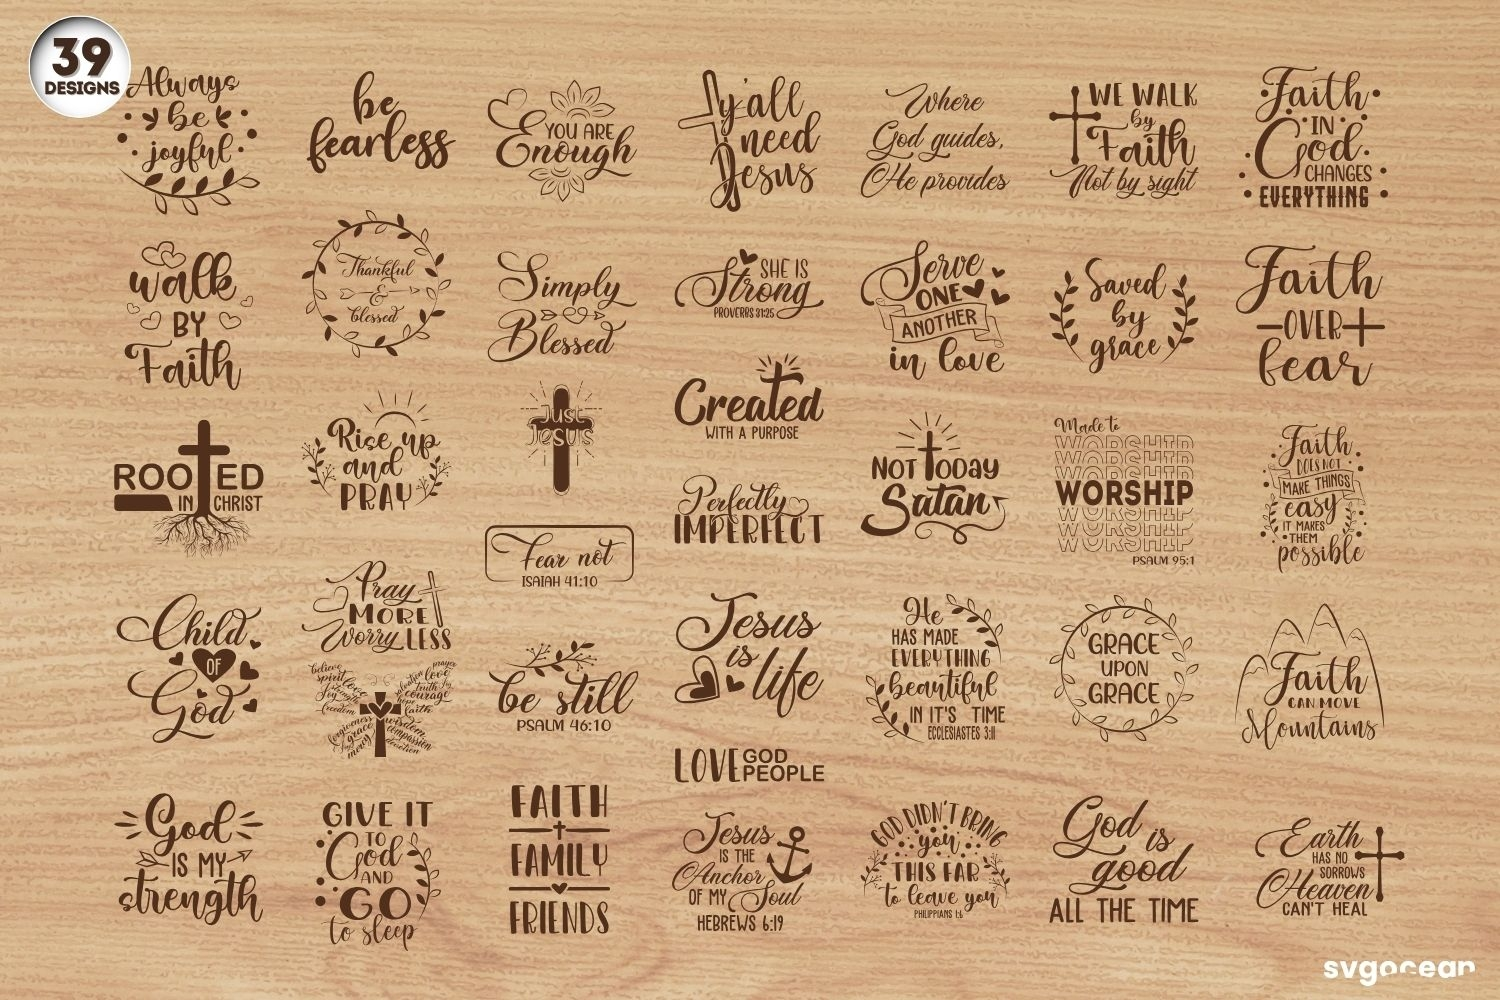 39
DESIGNS
Always
be
joyful
be
fearless
YOU ARE
Enough
y'all
need
Jesus
Where
God guides,
He provides
WE WALK
by
Faith
Not by sight
Faith
IN
God
CHANGES
EVERYTHING
walk
BY
Faith
Thankful
&
blessed
Simply
Blessed
SHE IS
Strong
PROVERBS 31:25
Serve
ONE
ANOTHER
in love
Saved
by
grace
Faith
OVER
fear
ROOTED
IN CHRIST
Rise up
and
PRAY
Just
Jesus
Created
WITH A PURPOSE
Perfectly
IMPERFECT
NOT TODAY
Satan
Made to
WORSHIP
WORSHIP
WORSHIP
WORSHIP
WORSHIP
WORSHIP
WORSHIP
PSALM 95:1
Faith
DOES NOT
MAKE THINGS
easy
IT MAKES
THEM
possible
Fear not
ISAIAH 41:10
Child
OF
God
Pray
MORE
Worry LESS
believe
spirit
love
joy
strength
freedom
prayer
salvation
love
truth
joy
courage
hope
faith
forgiveness
grace
mercy
wisdom
compassion
devotion
be still
PSALM 46:10
Jesus
is
life
He
HAS MADE
EVERYTHING
beautiful
IN IT'S TIME
ECCLESIASTES 3:11
GRACE
UPON
GRACE
Faith
CAN MOVE
Mountains
LOVE GOD
PEOPLE
God
IS MY
strength
GIVE IT
TO
God
AND
GO
to sleep
FAITH
FAMILY
FRIENDS
Jesus
IS THE
Anchor
OF MY Soul
HEBREWS 6:19
GOD DIDN'T BRING
you
THIS FAR
to leave you
PHILIPPIANS 1:6
God is
good
ALL THE TIME
Earth
HAS NO
SORROWS
Heaven
CAN'T HEAL
svgocean